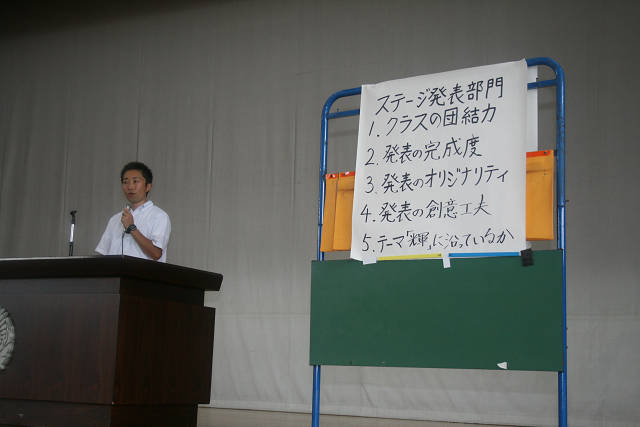 ステージ発表部門
1. クラスの団結力
2. 発表の完成度
3. 発表のオリジナリティ
4. 発表の創意工夫
5. テーマ「輝」に沿っているか